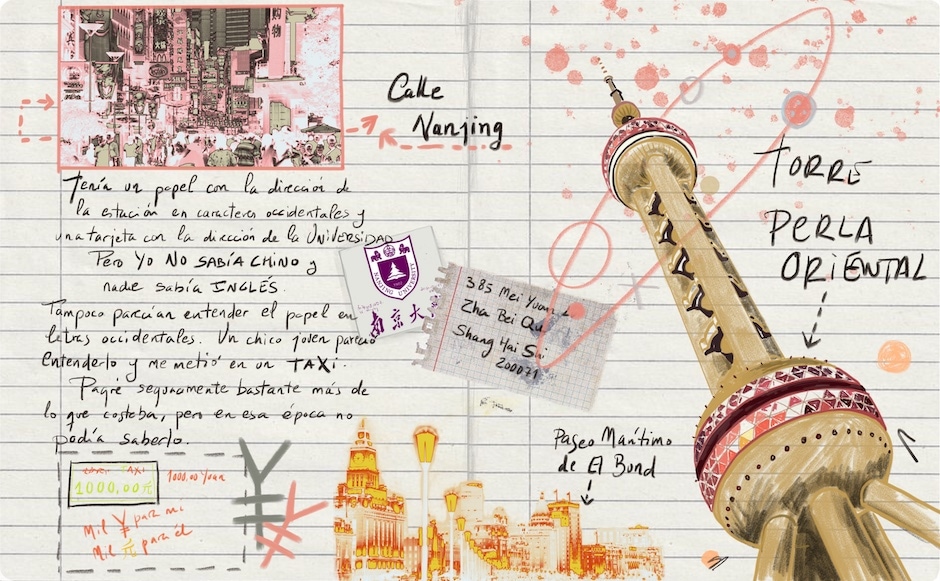 Calle
Nanjing
Tenía un papel con la dirección de
la estación en caracteres occidentales y
una tarjeta con la dirección de la UNIVERSIDAD
PERO YO NO SABÍA CHINO y
nadie sabía INGLÉS.
Tampoco parecían entender el papel en
letras occidentales. Un chico joven pareció
entenderlo y me metió en un TAXI.
Pagué seguramente bastante más de
lo que costaba, pero en esa época no
podía saberlo.
NANJING UNIVERSITY
1902
南京大
385 Mei Yuan
Zha Bei Qu
Shang Hai Shi
200071
TORRE
PERLA
ORIENTAL
Paseo Marítimo
de El Bund
TAXI
1000,00元
1000,00 Yuan
Mil ¥ para mi
Mil 元 para él
¥
¥